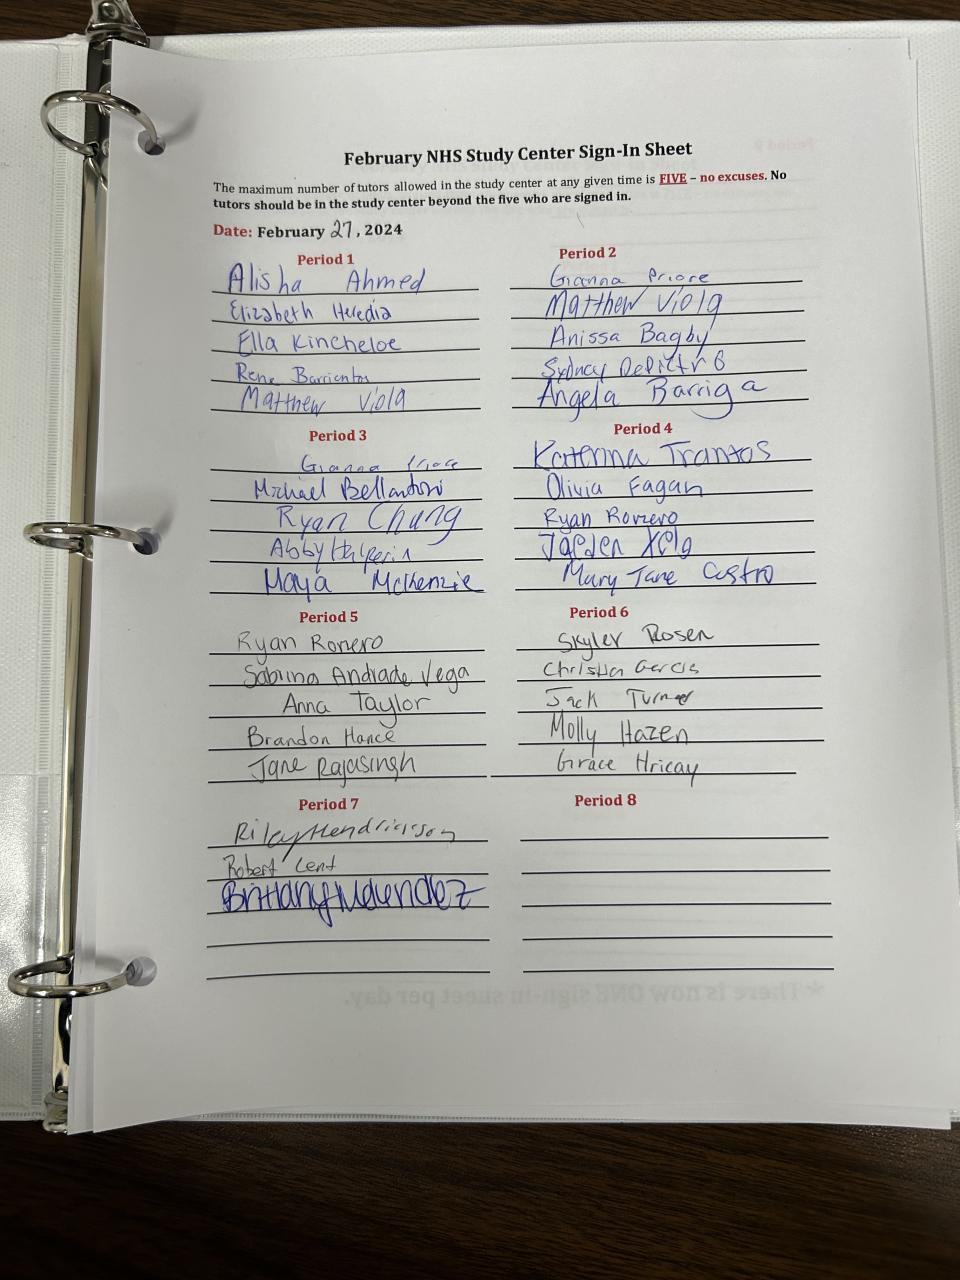 February NHS Study Center Sign-In Sheet
The maximum number of tutors allowed in the study center at any given time is FIVE – no excuses. No
tutors should be in the study center beyond the five who are signed in.
Date: February 27, 2024
Period 1
Alisha Ahmed
Elizabeth Heredia
Ella Kincheloe
Rene Barrientos
Matthew Viola
Period 2
Gianna Priore
Matthew Viola
Anissa Bagby
Sydney
Angela Barriga
Period 3
Gianna Priore
Michael Bellantoni
Ryan Chung
Abby Halperin
Maya McKenzie
Period 4
Katerina Trantos
Olivia Fagan
Ryan Romero
Jaeden
Mary Jane Castro
Period 5
Ryan Romero
Sabrina Andrade Vega
Anna Taylor
Brandon Hance
Jane Rajasingh
Period 6
Skyler Rosen
Christian Garcia
Jack Turner
Molly Hazen
Grace Hricay
Period 7
Riley Hendrickson
Robert Lent
Brittany Melendez
Period 8
*There is now ONE sign-in sheet per day.